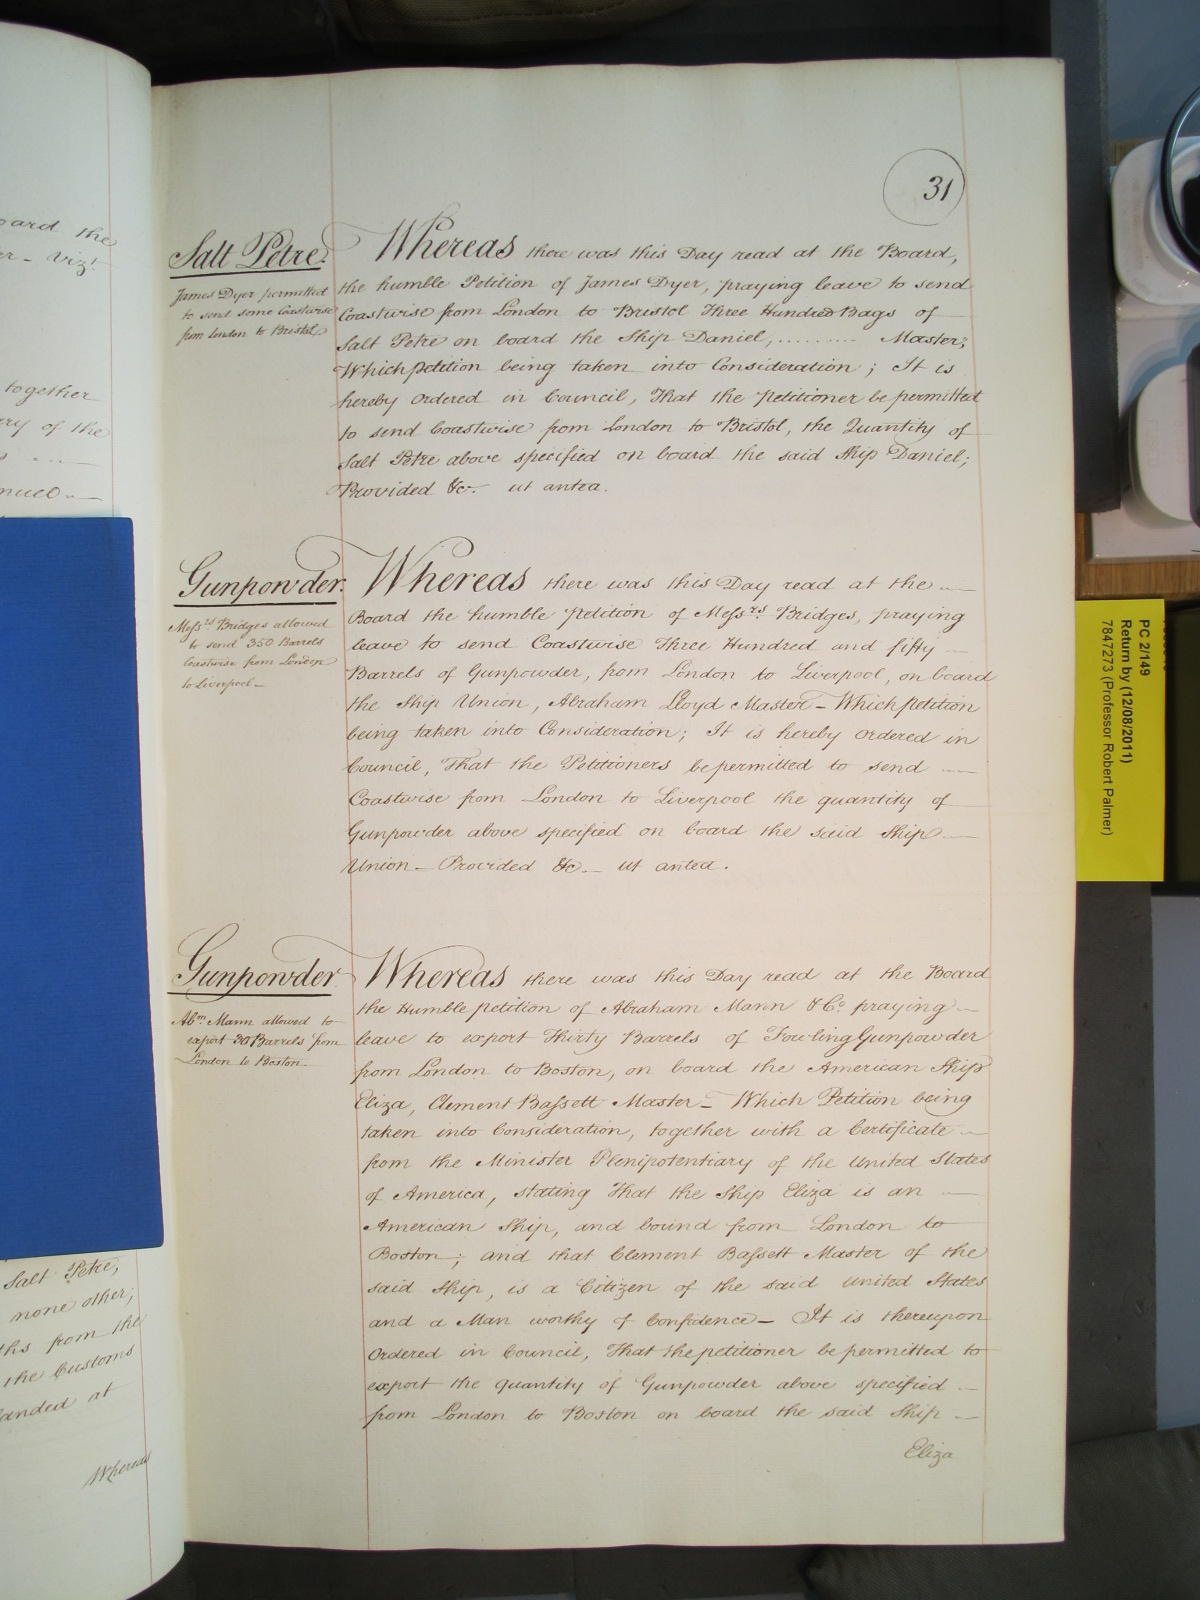 oard the
er – Viz.t
together
ry of the
nuel
Salt Petre,
none other;
ths from the
the Customs
anded at
Whereas
31
Salt Petre.
James Dyer permitted
to send some Coastwise
from London to Bristol
Whereas there was this Day read at the Board,
the humble Petition of James Dyer, praying leave to send
Coastwise from London to Bristol Three Hundred Bags of
Salt Petre on board the Ship Daniel, ......... Master;
Which petition being taken into Consideration; It is
hereby ordered in Council, That the Petitioner be permitted
to send Coastwise from London to Bristol, the Quantity of
Salt Petre above specified on board the said Ship Daniel;
Provided &c. ut antea.
Gunpowder.
Mess.rs Bridges allowed
to send 350 Barrels
Coastwise from London
to Liverpool –
Whereas there was this Day read at the
Board the humble Petition of Mess.rs Bridges, praying
leave to send Coastwise Three Hundred and fifty
Barrels of Gunpowder, from London to Liverpool, on board
the Ship Union, Abraham Lloyd Master – Which petition
being taken into Consideration; It is hereby ordered in
Council, That the Petitioners be permitted to send
Coastwise from London to Liverpool the quantity of
Gunpowder above specified on board the said Ship
Union – Provided &c – ut antea.
Gunpowder
Ab.m Mann allowed to
export 30 Barrels from
London to Boston
Whereas there was this Day read at the Board
the Humble petition of Abraham Mann & Co. praying
leave to export Thirty Barrels of Fowling Gunpowder
from London to Boston, on board the American Ship
Eliza, Clement Bassett Master – Which Petition being
taken into Consideration, together with a Certificate
from the Minister Plenipotentiary of the United States
of America, stating That the Ship Eliza is an
American Ship, and bound from London to
Boston; and that Clement Bassett Master of the
said Ship, is a Citizen of the said United States
and a Man worthy of Confidence – It is thereupon
Ordered in Council, That the petitioner be permitted to
export the quantity of Gunpowder above specified
from London to Boston on board the said Ship
Eliza
PC 2/149
Return by (12/08/2011)
7847273 (Professor Robert Palmer)